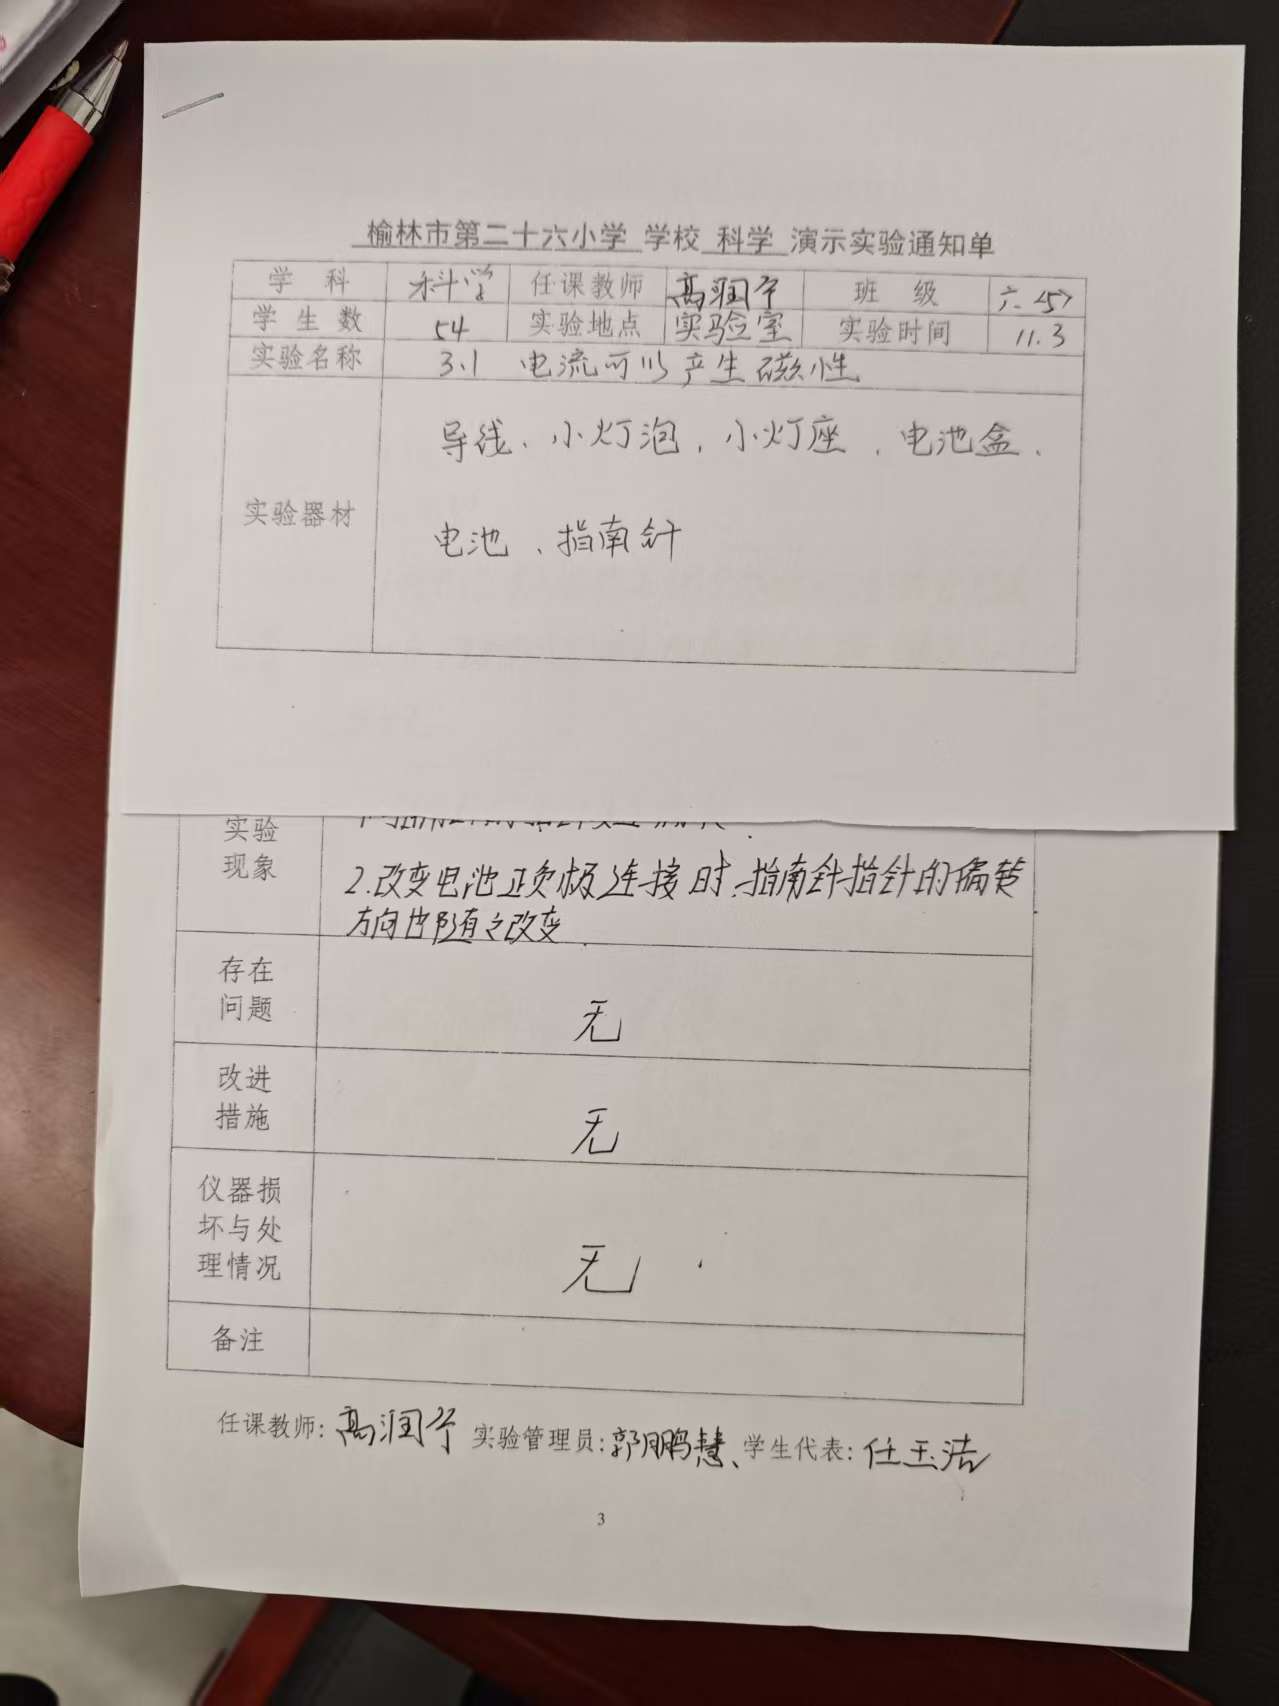 榆林市第二十六小学 学校 科学 演示实验通知单
学 科 科学 任课教师 高润宁 班 级 六<5>
学 生 数 54 实验地点 实验室 实验时间 11.3
实验名称 3.1 电流可以产生磁性
实验器材 导线、小灯泡、小灯座、电池盒、
电池、指南针
实验
现象
2.改变电池正负极连接时,指南针指针的偏转
方向也随之改变
存在
问题
无
改进
措施
无
仪器损
坏与处
理情况
无
备注
任课教师:高润宁 实验管理员:郭鹏慧、学生代表:任玉洁
3